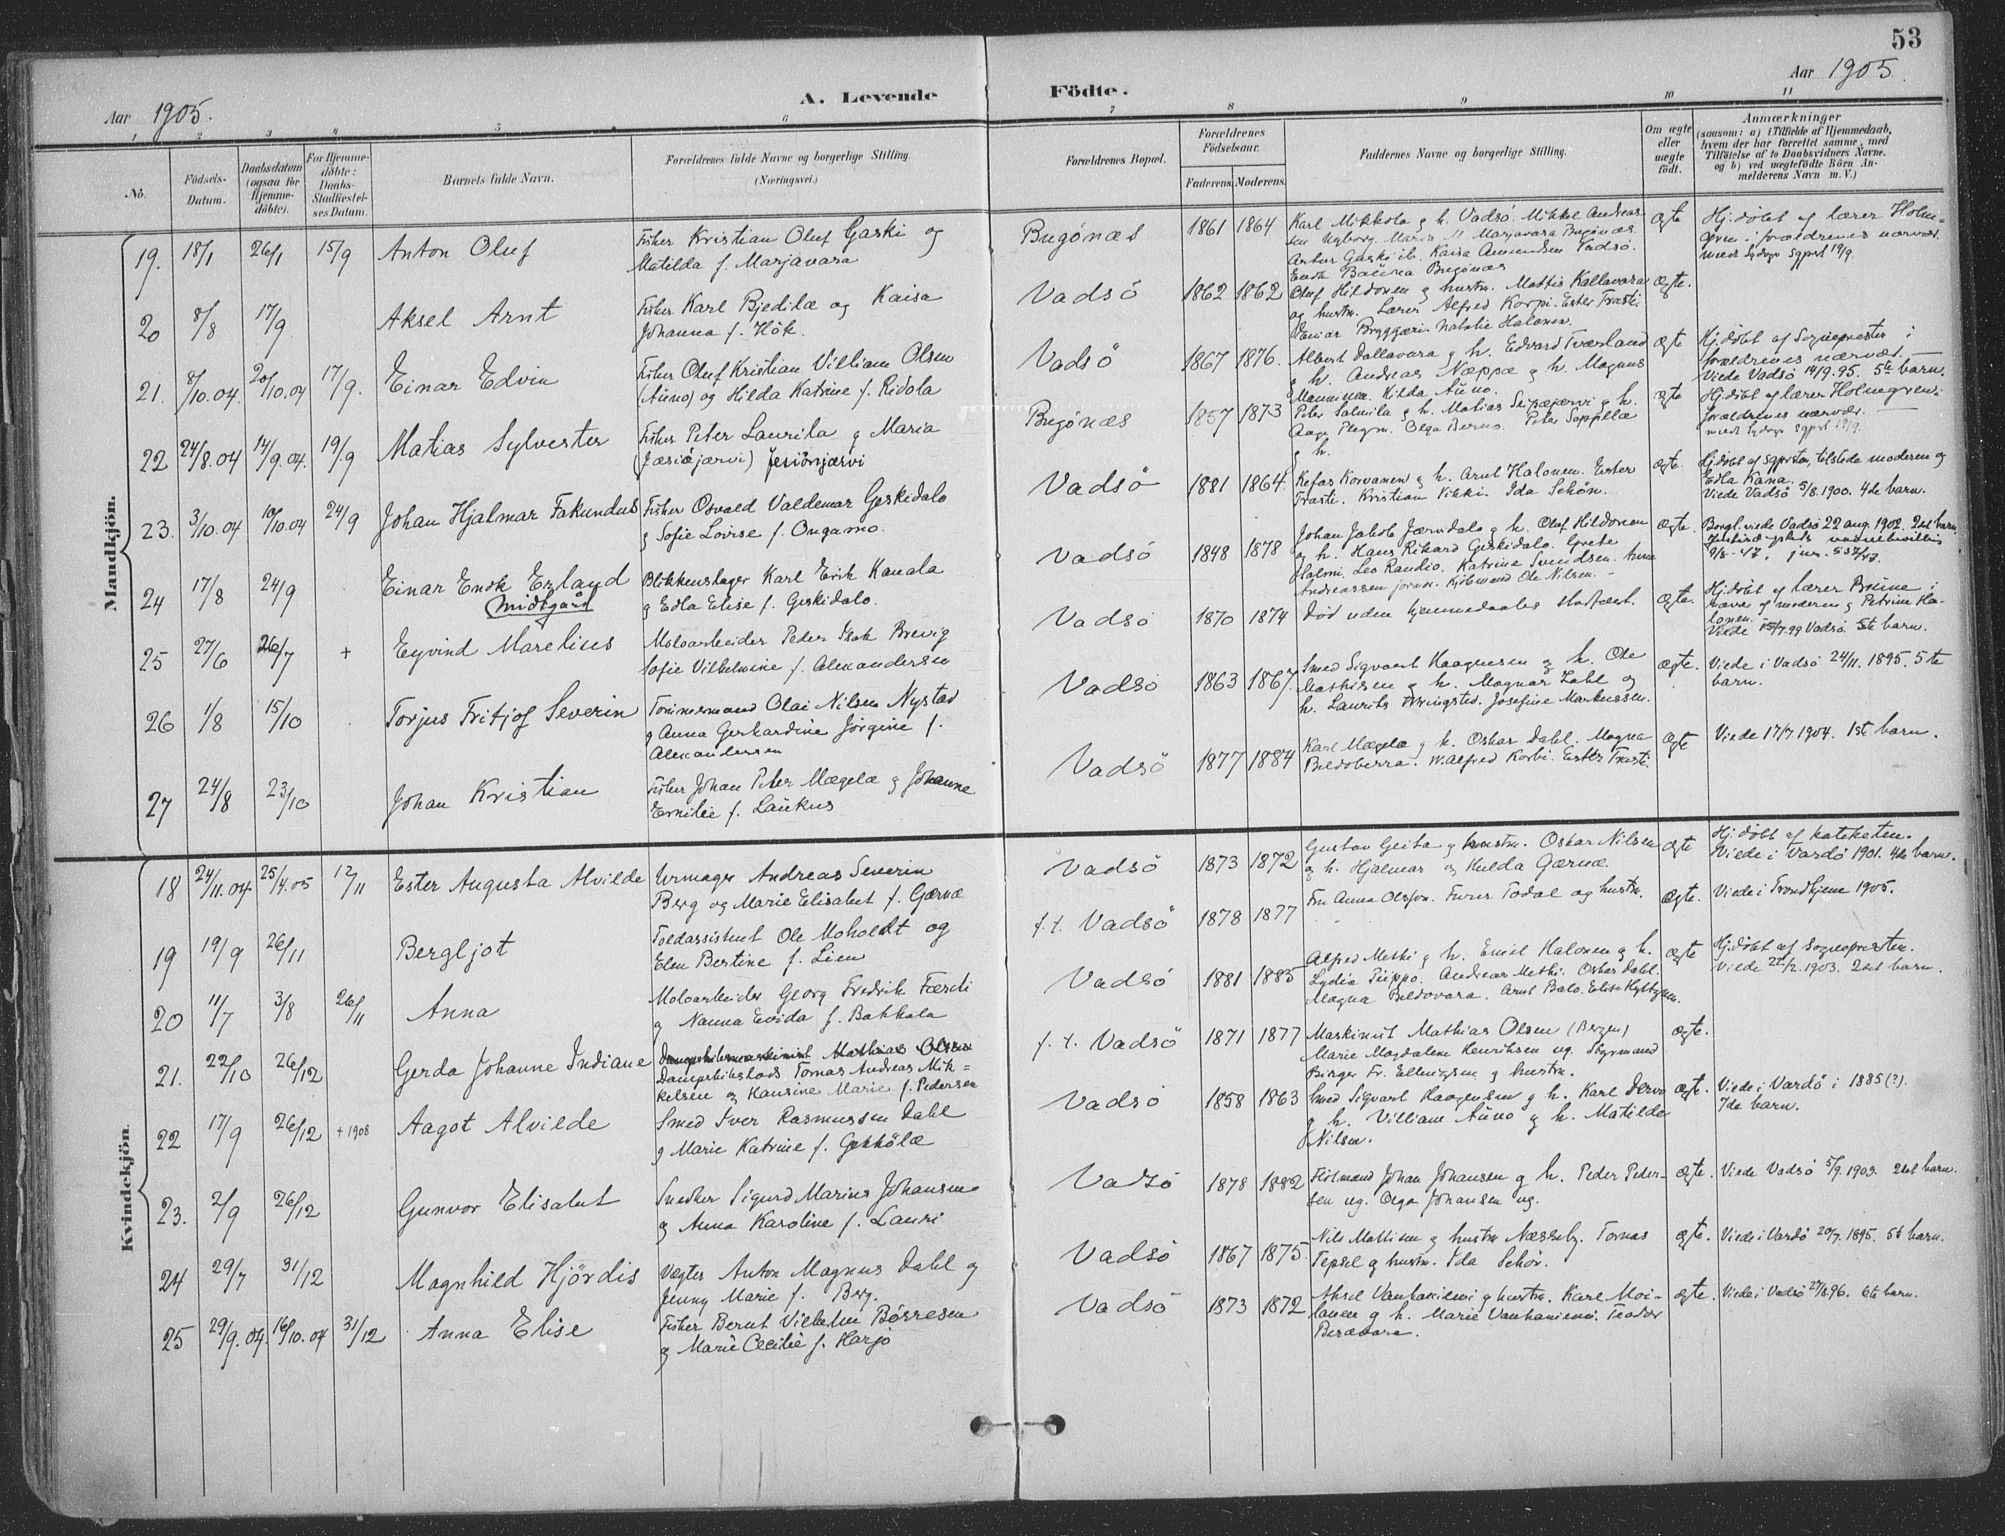 53
Aar 1905.
A. Levende Födte.
Aar 1905.
1 2 3 4 5 6 7 8 9 10 11
No.
Födsels-Datum.
Daabsdatum (ogsaa for Hjemme-döbte).
For Hjemme-döbte: Daabs-Stadfæstel-ses Datum.
Barnets fulde Navn.
Forældrenes fulde Navne og borgerlige Stilling.
(Næringsvei.)
Forældrenes Bopæl.
Forældrenes Födselsaar.
Faderens. Moderens.
Faddernes Navne og borgerlige Stilling.
Om ægte eller uægte födt.
Anmærkninger
(saasom: a) i Tilfælde af Hjemmedaab, hvem der har forrettet samme, med Tilföielse af to Daabsvidners Navne, og b) ved uægtefödte Börn An-melderens Navn m. V.)
Mandkjön.
19. 18/1 26/1 15/9 Anton Oluf
Fisker Kristian Oluf Gaski og
Matilda f. Marjavara
Bugönæs 1861 1864
Karl Mikkola g h. Vadsö. Mikkel Andreas
ægte
Hj.döbt af lærer Holm-
gren i forældrenes nærvær.
20 8/8 17/9 Aksel Arnt
Fisker Karl Bjedilæ og Kaisa
Johanna f. Hök.
Vadsö 1862 1862
Oluf Hildonen g hustru. Mattis Kallavara
og hustru. Lærer Alfred Korpi. Ester Trasti
Natalie Halonen.
ægte.
21. 8/10.04. 20/10.04 17/9. Einar Edvin
Fisker Oluf Kristian Villiam Olsen
(Auno) og Hilda Katrine f. Ridola
Vadsö 1867 1876.
Albert Dallavara g h. Edvard Tværland
g h. Andreas Næppæ g h. Magnus
Manninen. Hilda Auno.
ægte
Hj.döbt af Sogneprester i
forældrenes nærvær.
Viede Vadsö 14/9.95. 5te barn.
22 24/8.04 14/9.04. 19/9 Matias Sylvester
Fisker Peter Laurila g Maria
(Jæsiöjærvi) Jesiönjærvi
Bugönæs 1857 1873
Peter Salmila g h. Matias Seipæjærvi g h.
g h.
ægte
Hj.döbt af lærer Holmgren i
forældrenes nærvær.
23. 3/10.04 10/10.04 24/9 Johan Hjalmar Fakundus
Fisker Osvald Valdemar Geskidalo
g Sofie Lovise f. Ongamo.
Vadsö 1881 1864.
Kefas Korvanen g h. Arut Halonen. Ester
Trasti. Kristian Kikki. Ida Schön.
ægte.
Hj.döbt af Sgprsten, tilstede moderen og
Edla Kana.
Viede Vadsö 5/8.1900. 4de barn.
24 17/8 24/9 Einar Enok Erland
Midtgård
Blikkenslager Karl Erik Kanala
g Edla Elise f. Geskidalo.
Vadsö 1848 1878
Johan Jakob Jærvdalo g h. Oluf Hildonen
og h. Hans Rikard Geskidalo. Grete
Salmi. Leo Randio. Katrine Svendsen. Anna
Andreassen jordm. Kjöbmand Ole Nilsen.
ægte.
Borgl. viede Vadsö 22 aug. 1902. 2det barn.
25 27/6 26/7 + Eyvind Marelius
Moloarbeider Peder Isak Brevig
Sofie Vilhelmine f. Alexandersen
Vadsö 1870 1874
Död uden hjemmedaabes stadfæst.
ægte.
Hj.döbt af lærer Beine i
nærvær af moderen g Petrine Ha-
lonen.
Viede 15/7.99 Vadsö. 5te barn.
26 1/8 15/10 Torjus Fritjof Severin
Tömmermand Olai Nilsen Nystad
g Anna Gerhardine Jörgine f.
Alexandersen
Vadsö 1863 1867.
Smed Sigvart Haagensen g h. Ole
Mathisen g h. Magnar Dahl og
h. Laurits Wringsted. Josefine Markussen.
ægte.
Viede i Vadsö 24/11.1895. 5te
barn.
27 24/8 23/10 Johan Kristian
Fisker Johan Peter Mægelæ g Johanne
Emilie f. Laukus
Vadsö 1877 1884
Karl Mægelæ g h. Oskar Dahl. Magna
Beldoberra. W. Alfred Korbi. Ester Trasti.
ægte
Viede 17/7 1904. 1ste barn.
Kvindekjön.
18 24/11.04 25/4.05 12/11 Ester Augusta Alvilde
Urmager Andreas Severin
Berg og Marie Elisabet f. Gærnæ
Vadsö 1873 1872
Gustav Geita g hustru. Oskar Nilsen
og h. Hjalmar og Hulda Gærnæ.
ægte
Hj.döbt af kateketen.
Viede i Vardö 1901. 4de barn.
19 19/9 26/11 Bergljot
Toldassistent Ole Moholdt og
Elen Bertine f. Lien
f.t. Vadsö 1878 1877
Fru Anna Olsson. Furer Todal og hustru.
ægte.
Viede i Trondhjem 1905.
20 11/7 3/8 26/11 Anna
Moloarbeider Georg Fredrik Færdi
g Nanna Evida f. Bakkala
Vadsö 1881 1885
Alfred Methi g h. Emil Halonen g h.
Lydia Pieppo. Andreas Methi. Oskar Dahl.
Magna Beldovara. Arut Balo. Elise Hyttynen.
ægte
Hj.döbt af Sognepresten.
Viede 22/2.1903. 2det barn.
21. 22/10 26/12 Gerda Johanne Indiane
Dampskibsmaskinist Mathias Olsen
Dampskibslods Tomas Andreas Mik=
kelsen og Hansine Marie f. Pedersen
f.t. Vadsö 1871 1877
Maskinist Mathias Olsen (Bergen)
Marie Magdalene Henriksen ug. Styrmand
Birger Fr. Ellingsen g hustru.
ægte.
22 17/9 26/12 + 1908 Aagot Alvilde
Smed Iver Rasmussen Dahl
g Marie Katrine f. Gekkölæ
Vadsö 1858 1863
Smed Sigvart Haagensen g h. Karl Dervo
g h. Villiam Auno g h. Matilde
Nilsen.
ægte.
Viede i Vardö i 1885(?).
7de barn.
23. 2/9 26/12 Gunvor Elisabet
Snedker Sigurd Marius Johansen
g Anna Karoline f. Lauri
Vadsö 1878 1882
Johan Johansen g h. Peder Peder-
sen ug. Olga Johansen ug.
ægte.
Viede Vadsö 5/9.1903. 2det barn.
24 29/7 31/12 Magnhild Hjördis
Vægter Anton Magnus Dahl g
Jenny Marie f. Berg.
Vadsö 1867 1875.
Nils Mattisen g hustru Næsseby. Tomas
Tepsel g hustru. Ida Schön.
ægte.
Viede i Vardö 20/7.1895. 5te barn.
25 29/9.04. 16/10.04 31/12 Anna Elise
Fisker Bernt Vilhelm Börresen
g Marie Cecilie f. Harjo
Vadsö 1873 1872
Aksel Vanhaniemi g hustru. Karl Moi-
lanen g h. Marie Vanhaniemi. Teodor
Beravara.
ægte.
Viede i Vadsö 27/6.96. 6te barn.